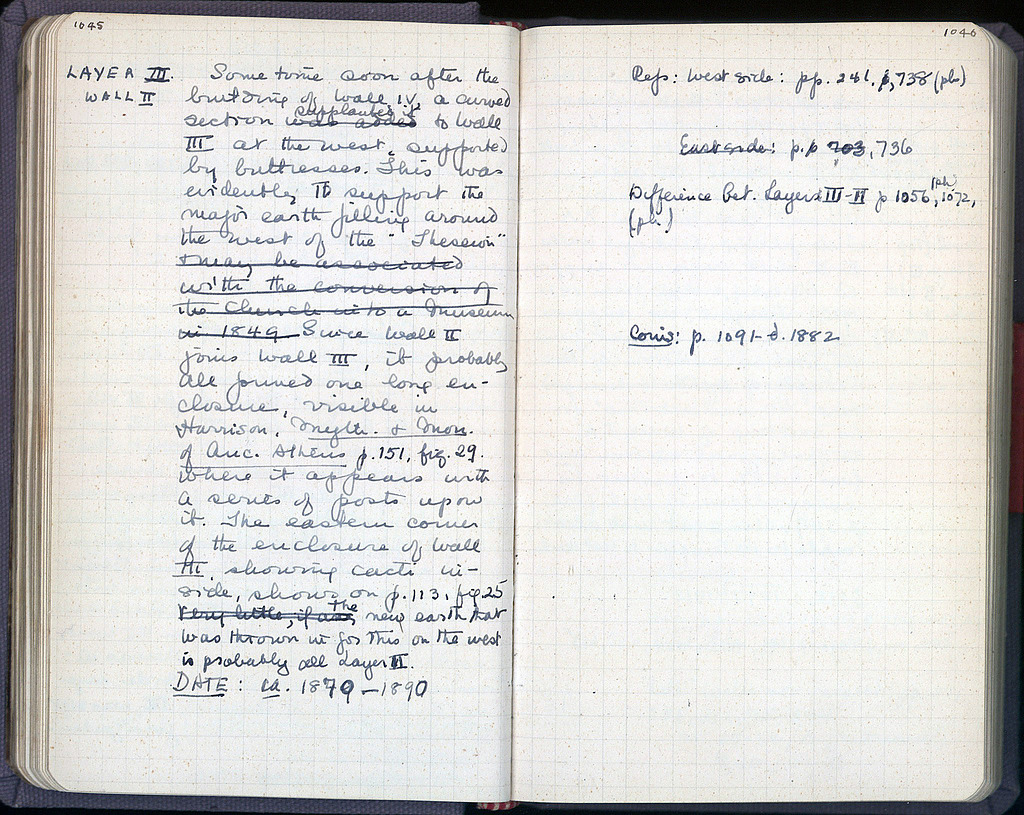 1045
LAYER III. Some time soon after the
WALL II building of Wall IV, a curved
supplanted it
section was added to Wall
III at the west, supported
by buttresses. This was
evidently to support the
major earth filling around
the west of the "Theseion"
& may be associated
with the conversion of
the Church into a Museum
in 1849 Since Wall II
joins Wall III, it probably
all joined one long en-
closure, visible in
Harrison, Myth. & Mon.
of Anc. Athens p.151, fig. 29.
where it appears with
a series of posts upon
it. The eastern corner
of the enclosure of Wall
III, showing cacti in-
side, shows on p.113, fig 25
Very little, if any, the new earth that
was thrown in for this on the west
is probably all Layer II.
DATE: ca. 1879–1890
1046
Refs: West side: pp. 241, 738 (ph)
East side: p.p 703, 736
Difference bet. Layers III–II p 1056, (ph) 1072,
(ph)
Coins: p. 1091 - d. 1882